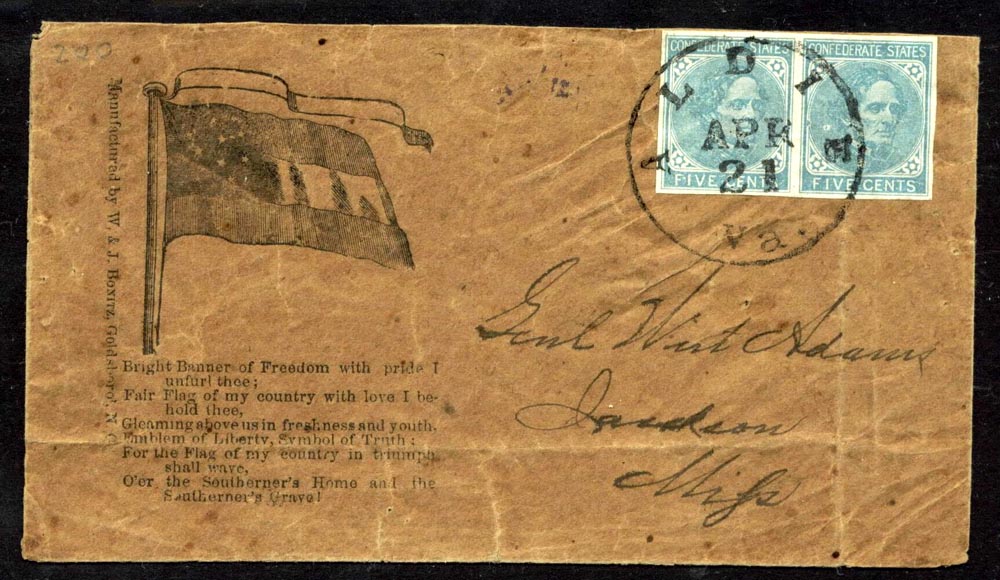 200
Manufactured by W. & J. BONITZ, Goldsboro, N. C.
CONFEDERATE STATES
FIVE CENTS
CONFEDERATE STATES
FIVE CENTS
ALDIE
APR
21
Va.
Bright Banner of Freedom with pride I
unfurl thee;
Fair Flag of my country with love I be-
hold thee,
Gleaming above us in freshness and youth,
Emblem of Liberty, Symbol of Truth;
For the Flag of my country in triumph
shall wave,
O'er the Southerner's Home and the
Southerner's Grave!
Genl Wirt Adams
Jackson
Miss